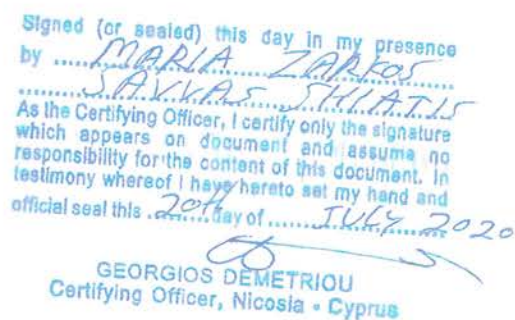 Signed (or sealed) this day in my presence
by ..... MARIA ZARKOS
..... SAVVAS SHIATIS
As the Certifying Officer, I certify only the signature
which appears on document and assume no
responsibility for the content of this document. In
testimony whereof I have hereto set my hand and
official seal this .20th.day of ..... JULY 2020
GEORGIOS DEMETRIOU
Certifying Officer, Nicosia - Cyprus